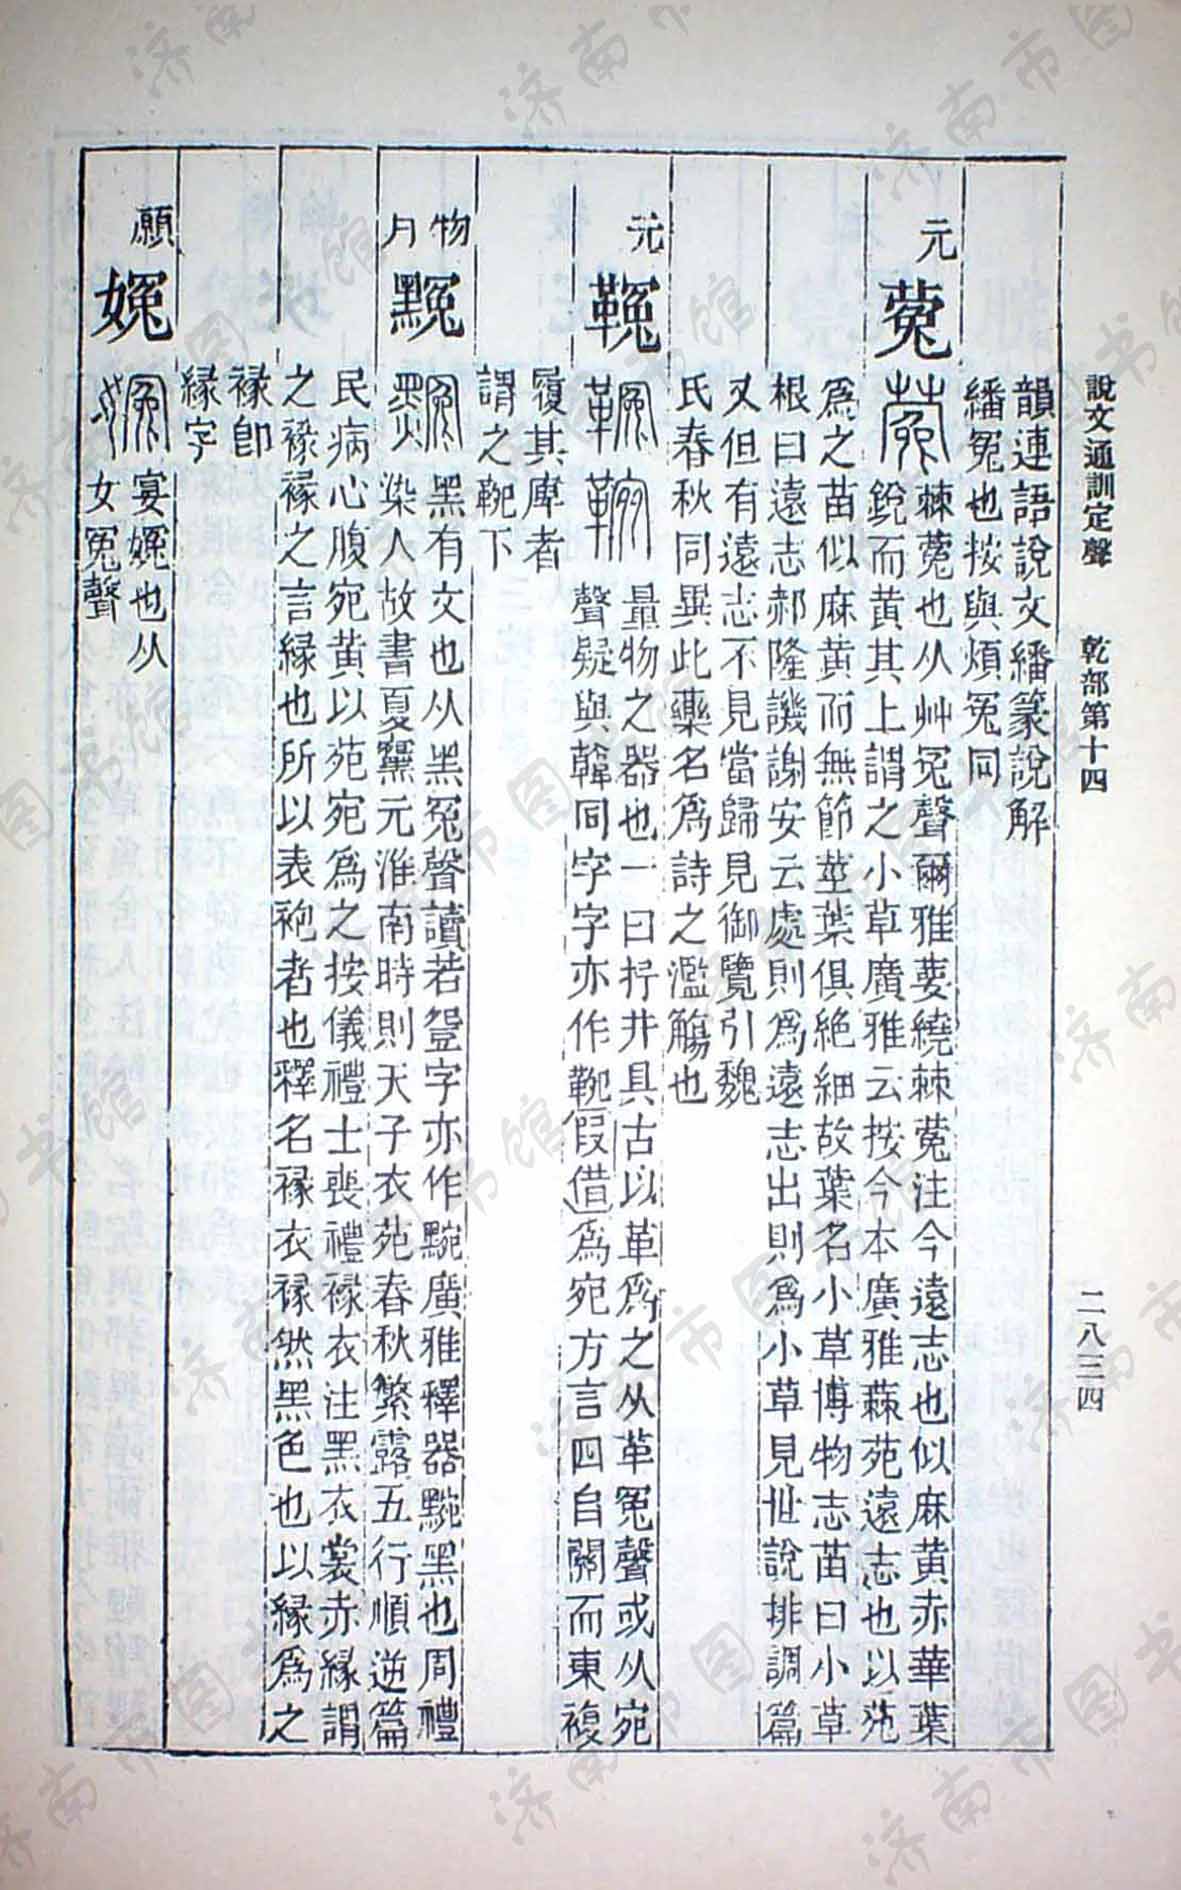 說文通訓定聲 乾部第十四 二八三四
韻連語說文繙篆說解
繙冤也按與煩冤同
元
蒬
棘蒬也从艸冤聲爾雅葽繞棘蒬注今遠志也似麻黄赤華葉
銳而黄其上謂之小草廣雅云按今本廣雅蕀苑遠志也以苑
爲之苗似麻黄而無節莖葉俱絶細故葉名小草博物志苗曰小草
根曰遠志郝隆譏謝安云處則爲遠志出則爲小草見世說排調篇
又但有遠志不見當歸見御覽引魏
氏春秋同異此藥名爲詩之濫觴也
元
鞔
量物之器也一曰抒井具古以革爲之从革冤聲或从宛
聲疑與韓同字字亦作鞔假借爲宛方言四自關而東複
履其庳者
謂之鞔下
物
月
黦
黑有文也从黑冤聲讀若登字亦作黦廣雅釋器黦黑也周禮
染人故書夏纁元淮南時則天子衣苑春秋繁露五行順逆篇
民病心腹宛黄以苑宛爲之按儀禮士喪禮褖衣注黑衣裳赤緣謂
之褖褖之言緣也所以表袍者也釋名褖衣褖然黑色也以緣爲之
褖卽
緣字
願
㛪
宴㛪也从
女冤聲
济南市图书馆